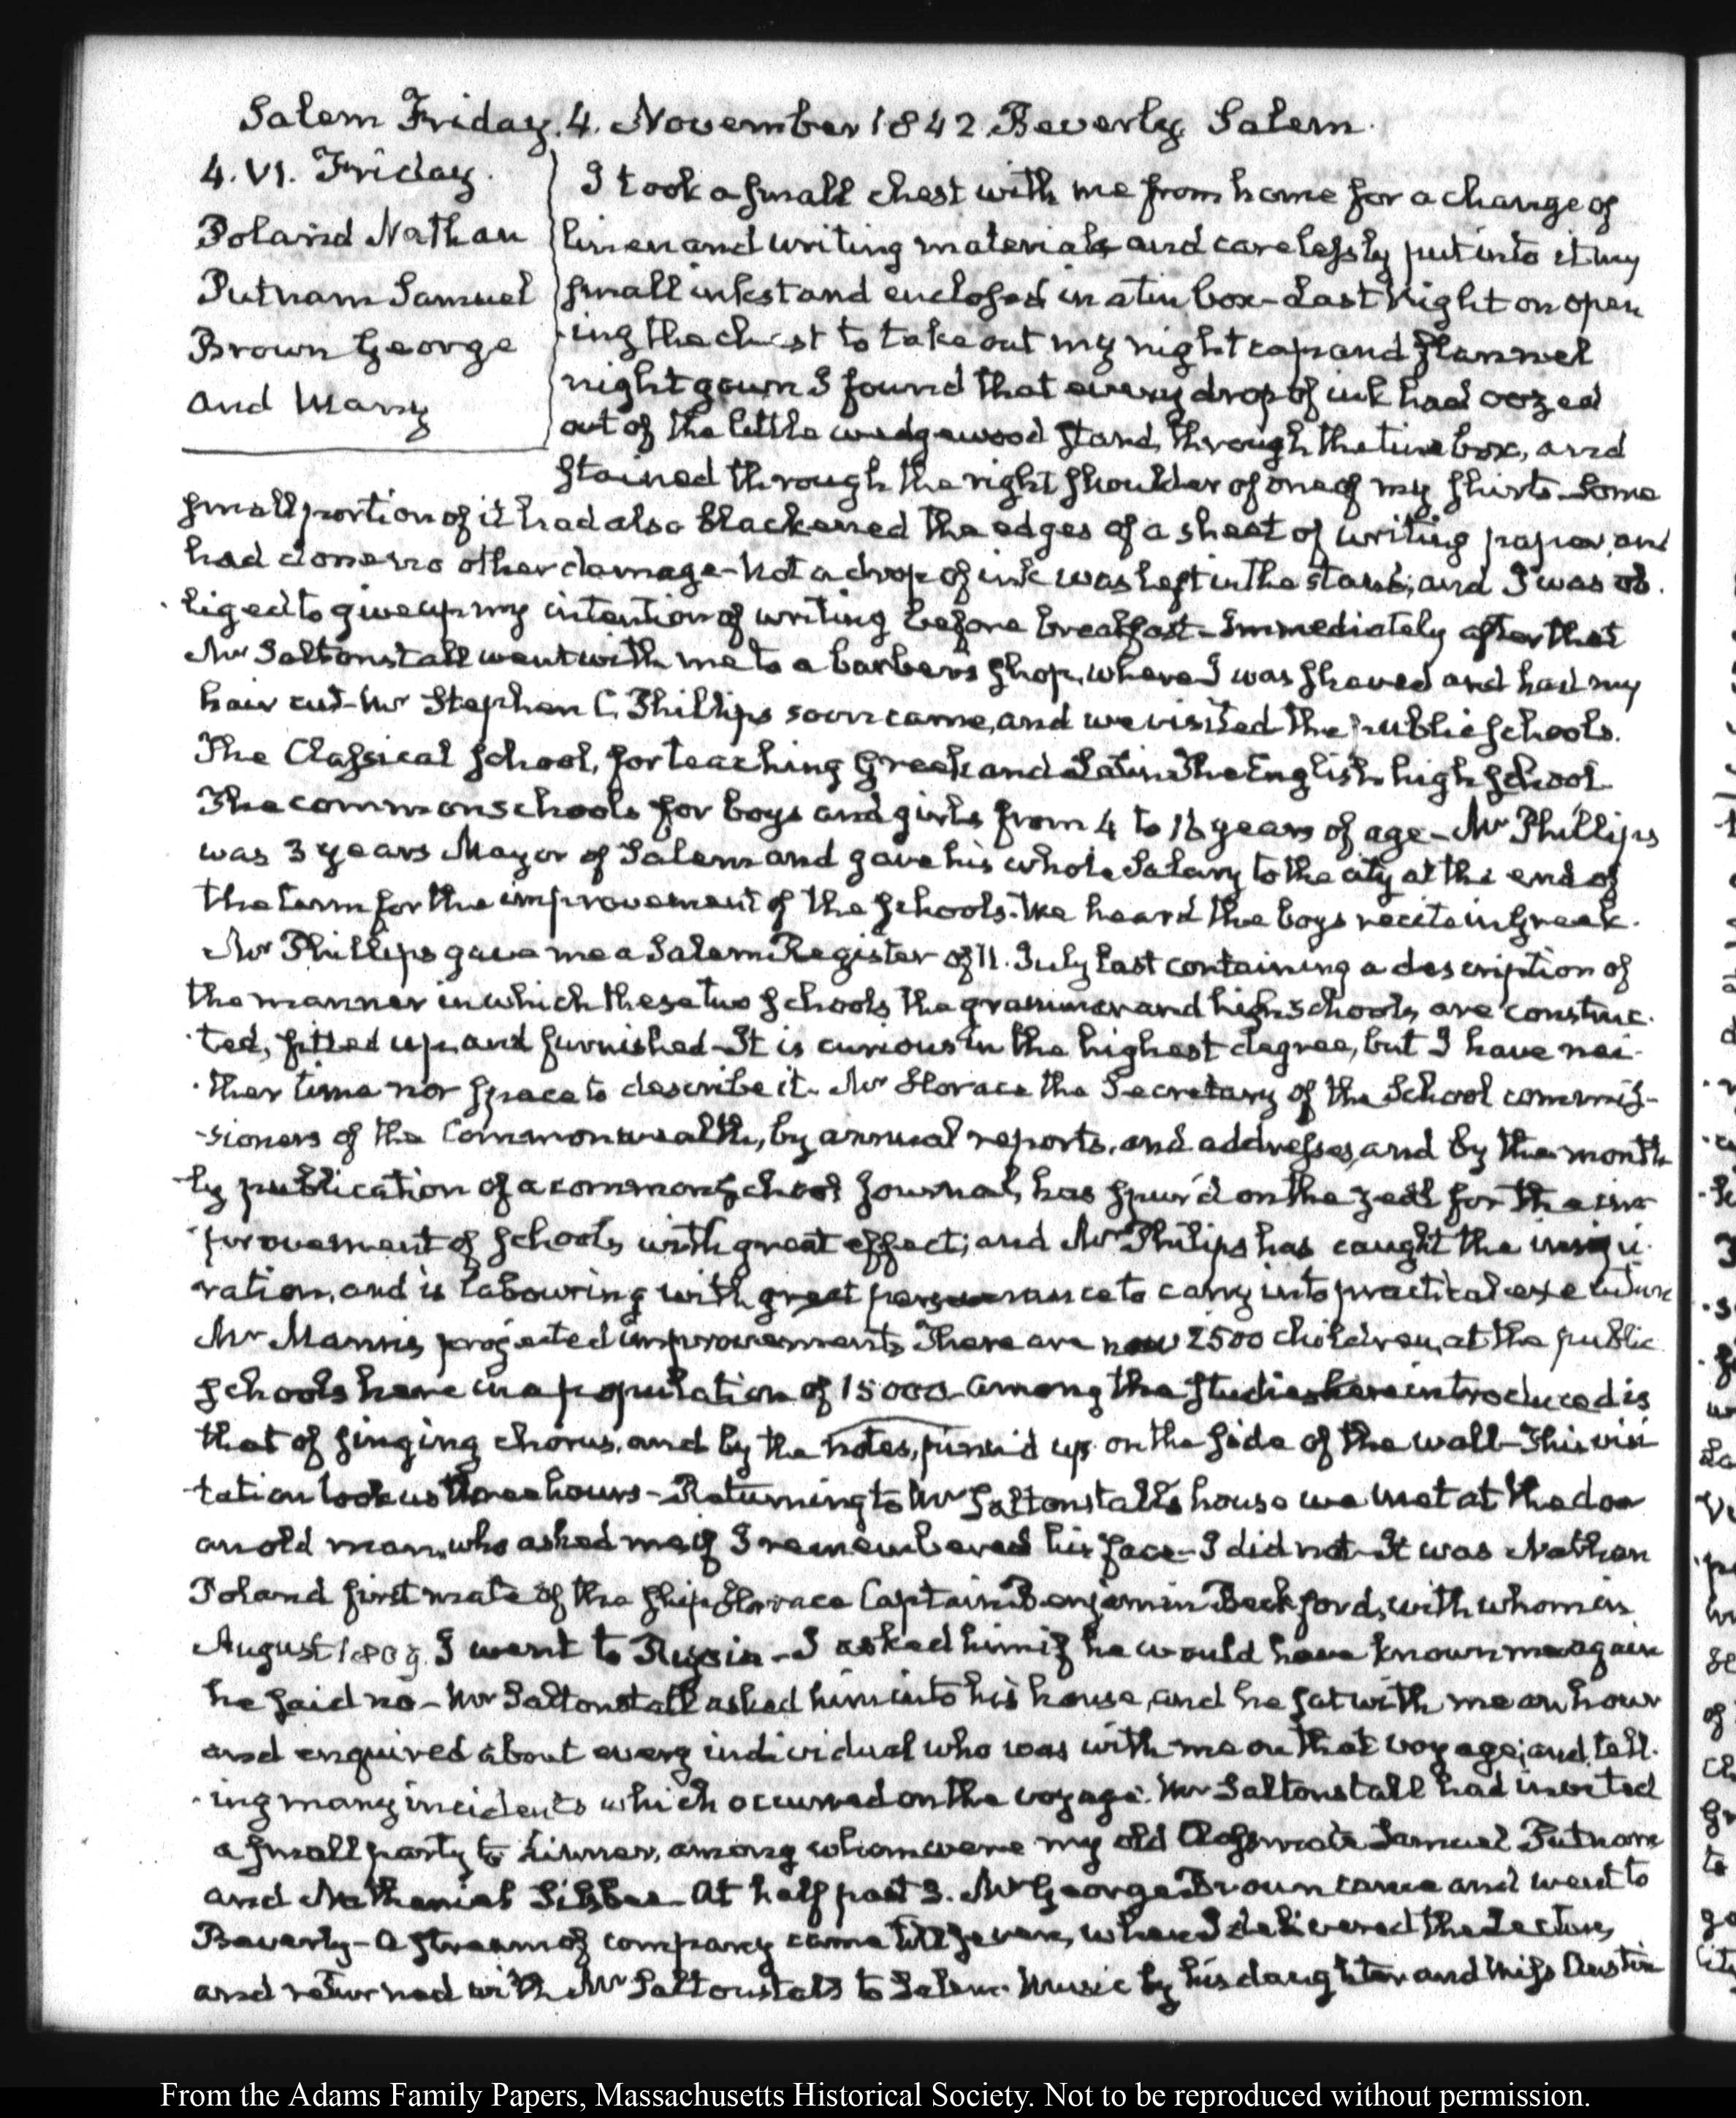 Salem Friday. 4. November 1842 Beverly. Salem.
4. VI. Friday.
Poland Nathan
Putnam Samuel
Brown George
and Mary
I took a small chest with me from home for a change of
linen and writing materials and carelessly put into it my
small inkstand enclosed in a tin box - Last Night on open
ing the chest to take out my night cap and flannel
night gown I found that every drop of ink had oozed
out of the little wedgewood stand, through the tin box, and
stained through the right shoulder of one of my shirts. Some
small portion of it had also blackened the edges of a sheet of writing paper, and
had done no other damage - Not a drop of ink was left in the stand; and I was ob.
liged to give up my intention of writing before breakfast - Immediately after that
Mr Saltonstall went with me to a barber's shop, where I was shaved and had my
hair cut - Mr Stephen C. Phillips soon came, and we visited the public schools.
The Classical School, for teaching Greek and Latin The English high school.
The common schools for boys and girls from 4 to 16 years of age - Mr Phillips
was 3 years Mayor of Salem and gave his whole Salary to the city at the end of
the term for the improvement of the schools. We heard the boys recite in Greek.
Mr Phillips gave me a Salem Register of 11. July last containing a description of
the manner in which these two schools the grammar and high schools, are construc.
ted, fitted up, and furnished - It is curious in the highest degree, but I have nei.
ther time nor space to describe it. Mr Horace the Secretary of the School commis-
sioners of the Commonwealth, by annual reports, and addresses, and by the month
ly publication of a common school Journal, has spur'd on the zeal for the im
provement of schools, with great effect; and Mr Philips has caught the inspi.
ration, and is labouring with great perseverance to carry into practical execution
Mr Mann's projected improvements. There are now 2500 children, at the public
schools here in a population of 15000 - Among the studies here introduced is
that of singing chorus, and by the notes, pinn'd up on the side of the wall - This visi
tation took us three hours - Returning to Mr Saltonstall's house we met at the door
an old man, who asked me if I remembered his face - I did not - It was Nathan
Poland first mate of the ship Horace Captain Benjamin Beckford, with whom in
August 1809. I went to Russia - I asked him if he would have known me again
he said no - Mr Saltonstall asked him into his house, and he sat with me an hour
and enquired about every individual who was with me on that voyage; and tell.
ing many incidents which occurred on the voyage. Mr Saltonstall had invited
a small party to dinner, among whom were my old Classmate Samuel Putnam
and Nathaniel Silsbee - At half past 3. Mr George Brown came and went to
Beverly - A stream of company came till seven, when I delivered the Lecture,
and returned with Mr Saltonstall to Salem. Music by his daughter and Miss Austin
From the Adams Family Papers, Massachusetts Historical Society. Not to be reproduced without permission.